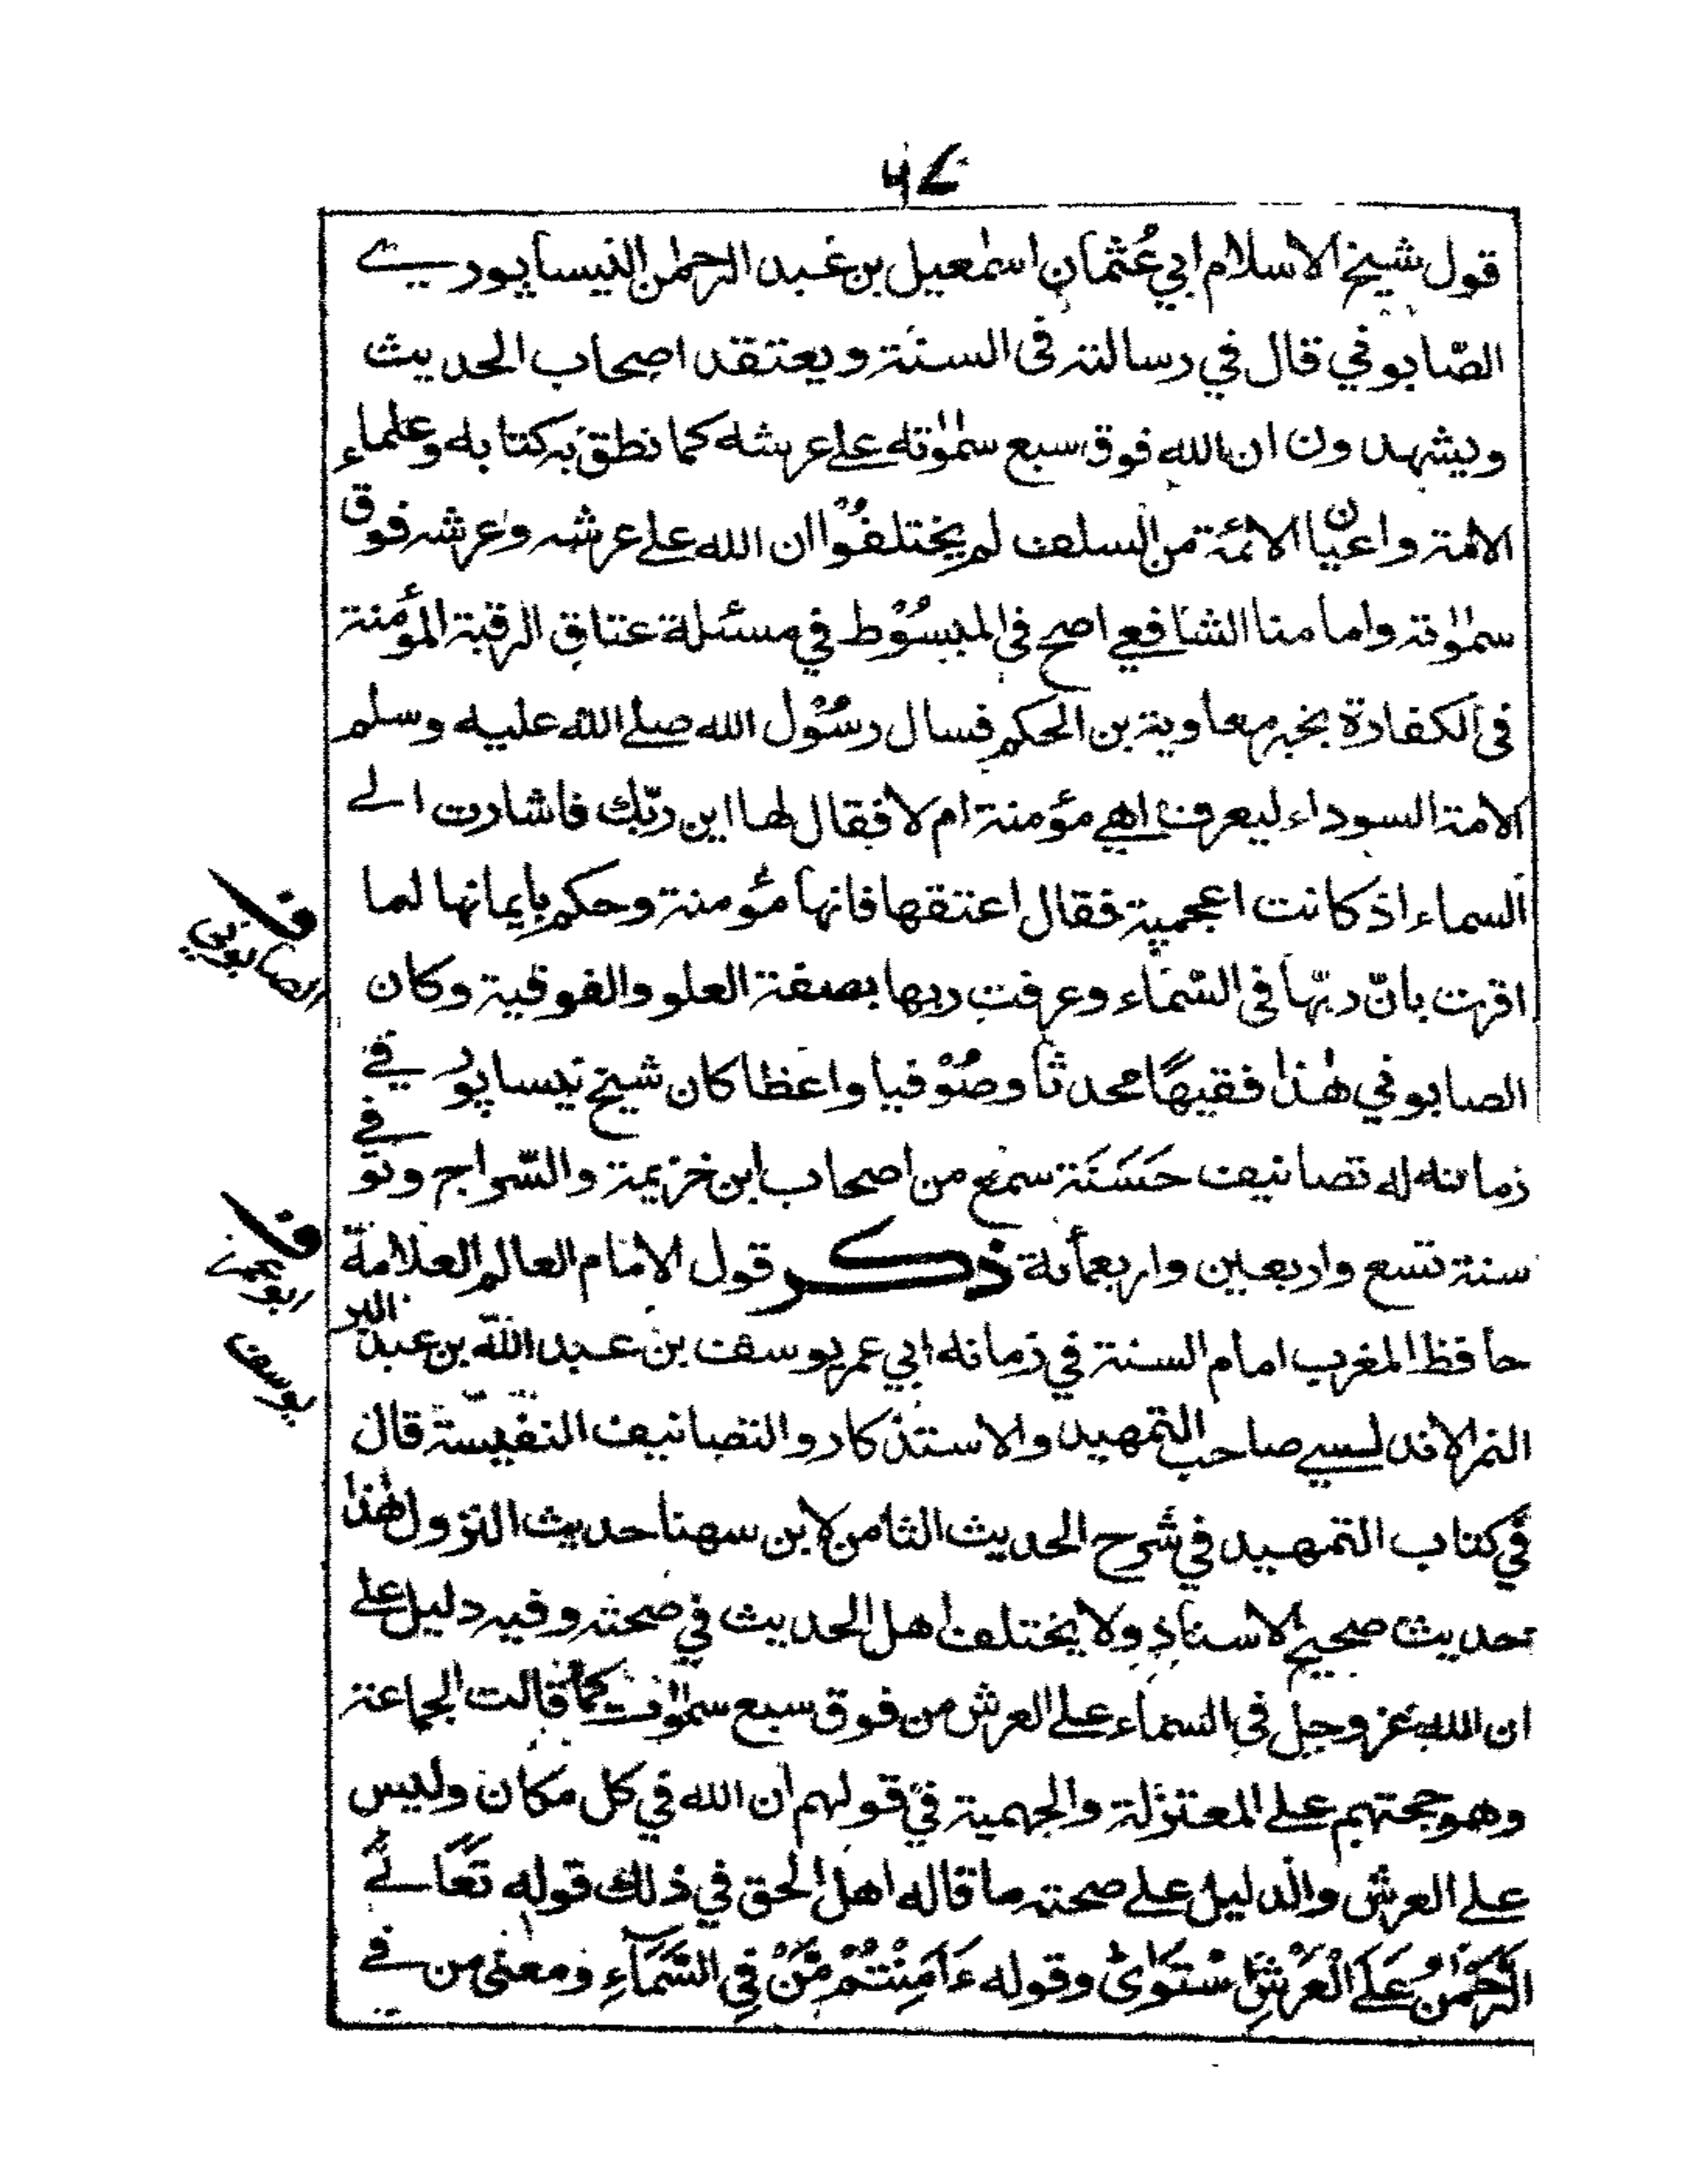 ٦٧
قول شيخ الاسلام ابي عُثمان اسمٰعيل بن عبد الرحمٰن النيسابوري
الصّابوني قال في رسالته فى السنة ويعتقد اصحاب الحديث
ويشهدون ان الله فوق سبع سمٰوٰته على عرشه كما نطق به كتابه وعلماء
الامة واعيان الائمة من السلف لم يختلفوا ان الله على عرشه وعرشه فوق
سمٰوٰته وامامنا الشافعي احتج فى المبسُوْط في مسئلة عتاق الرقبة المؤمنة
فى الكفارة بخبر معاوية بن الحكم فسال رسُوْل الله صلى الله عليه وسلم
الامة السوداء ليعرف اهي مؤمنة ام لا فقال لها اين ربّك فاشارت الى
السماء اذ كانت اعجمية فقال اعتقها فانها مؤمنة وحكم بايمانها لما
اقرت بانّ ربّها فى السّماء وعرفت ربها بصفة العلو والفوقية وكان
الصابوني هٰذا فقيهًا محدثا وصُوْفيا واعظا كان شيخ نيسابور في
زمانه له تصانيف حَسَنَة سمع من اصحاب ابن خزيمة والسّراج وتوفي
سنة تسع واربعين واربعمائة ذكر قول الامام العالم العلامة
حافظ المغرب امام السنة في زمانه ابي عمر يوسف بن عبد الله بن عبد البر
النمر الاندلسي صاحب التمهيد والاستذكار والتصانيف النفيسة قال
في كتاب التمهيد في شرح الحديث الثامن لابن سهنا حديث النزول هٰذا
حديث صحيح الاسناد ولا يختلف اهل الحديث في صحته وفيه دليل على
ان الله عز وجل فى السماء على العرش من فوق سبع سمٰوٰت كما قالت الجماعة
وهو حجتهم على المعتزلة والجهمية في قولهم ان الله في كل مكان وليس
على العرش والدليل على صحة ما قاله اهل الحق في ذلك قوله تَعَالىٰ
الرَّحْمٰنُ عَلَى الْعَرْشِ اسْتَوىٰ وقوله ءَاَمِنْتُمْ مَّنْ فِي السَّمَآءِ ومعنى من في
ف
الصابوني
ف
ابو عمر
يوسف